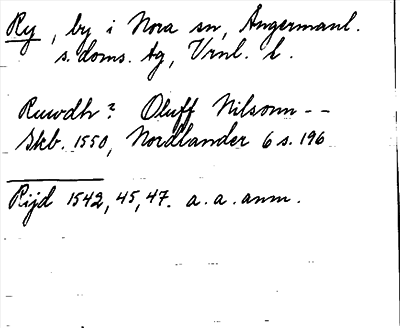 Ry, by i Nora sn, Ångermanl.
s. doms. tg, Vrnl. l.
Ruwdh? Oluff Nilsonn --
Skb. 1550, Nordlander 6 s. 196
Rijd 1542, 45, 47. a. a. anm.